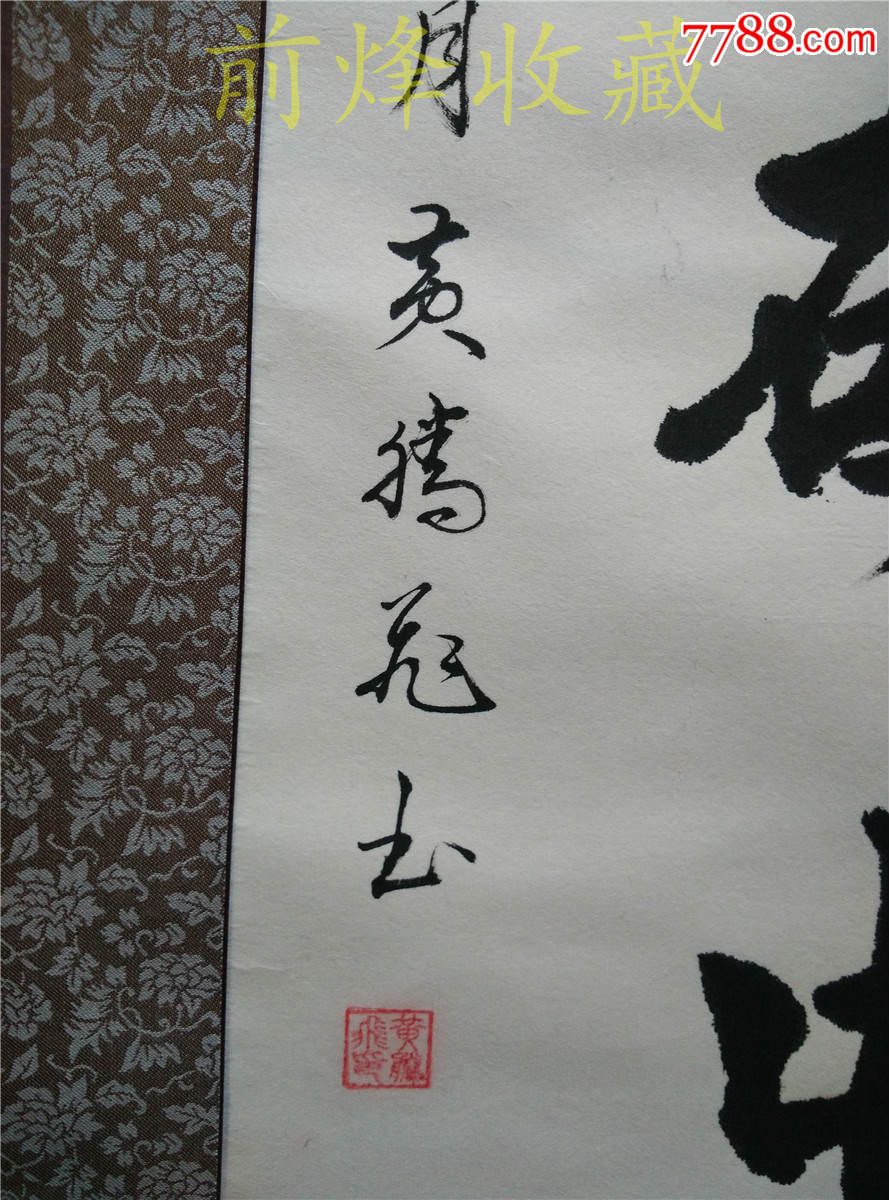 前烽收藏
7788.com
月黄腾飞书
黄腾飞书